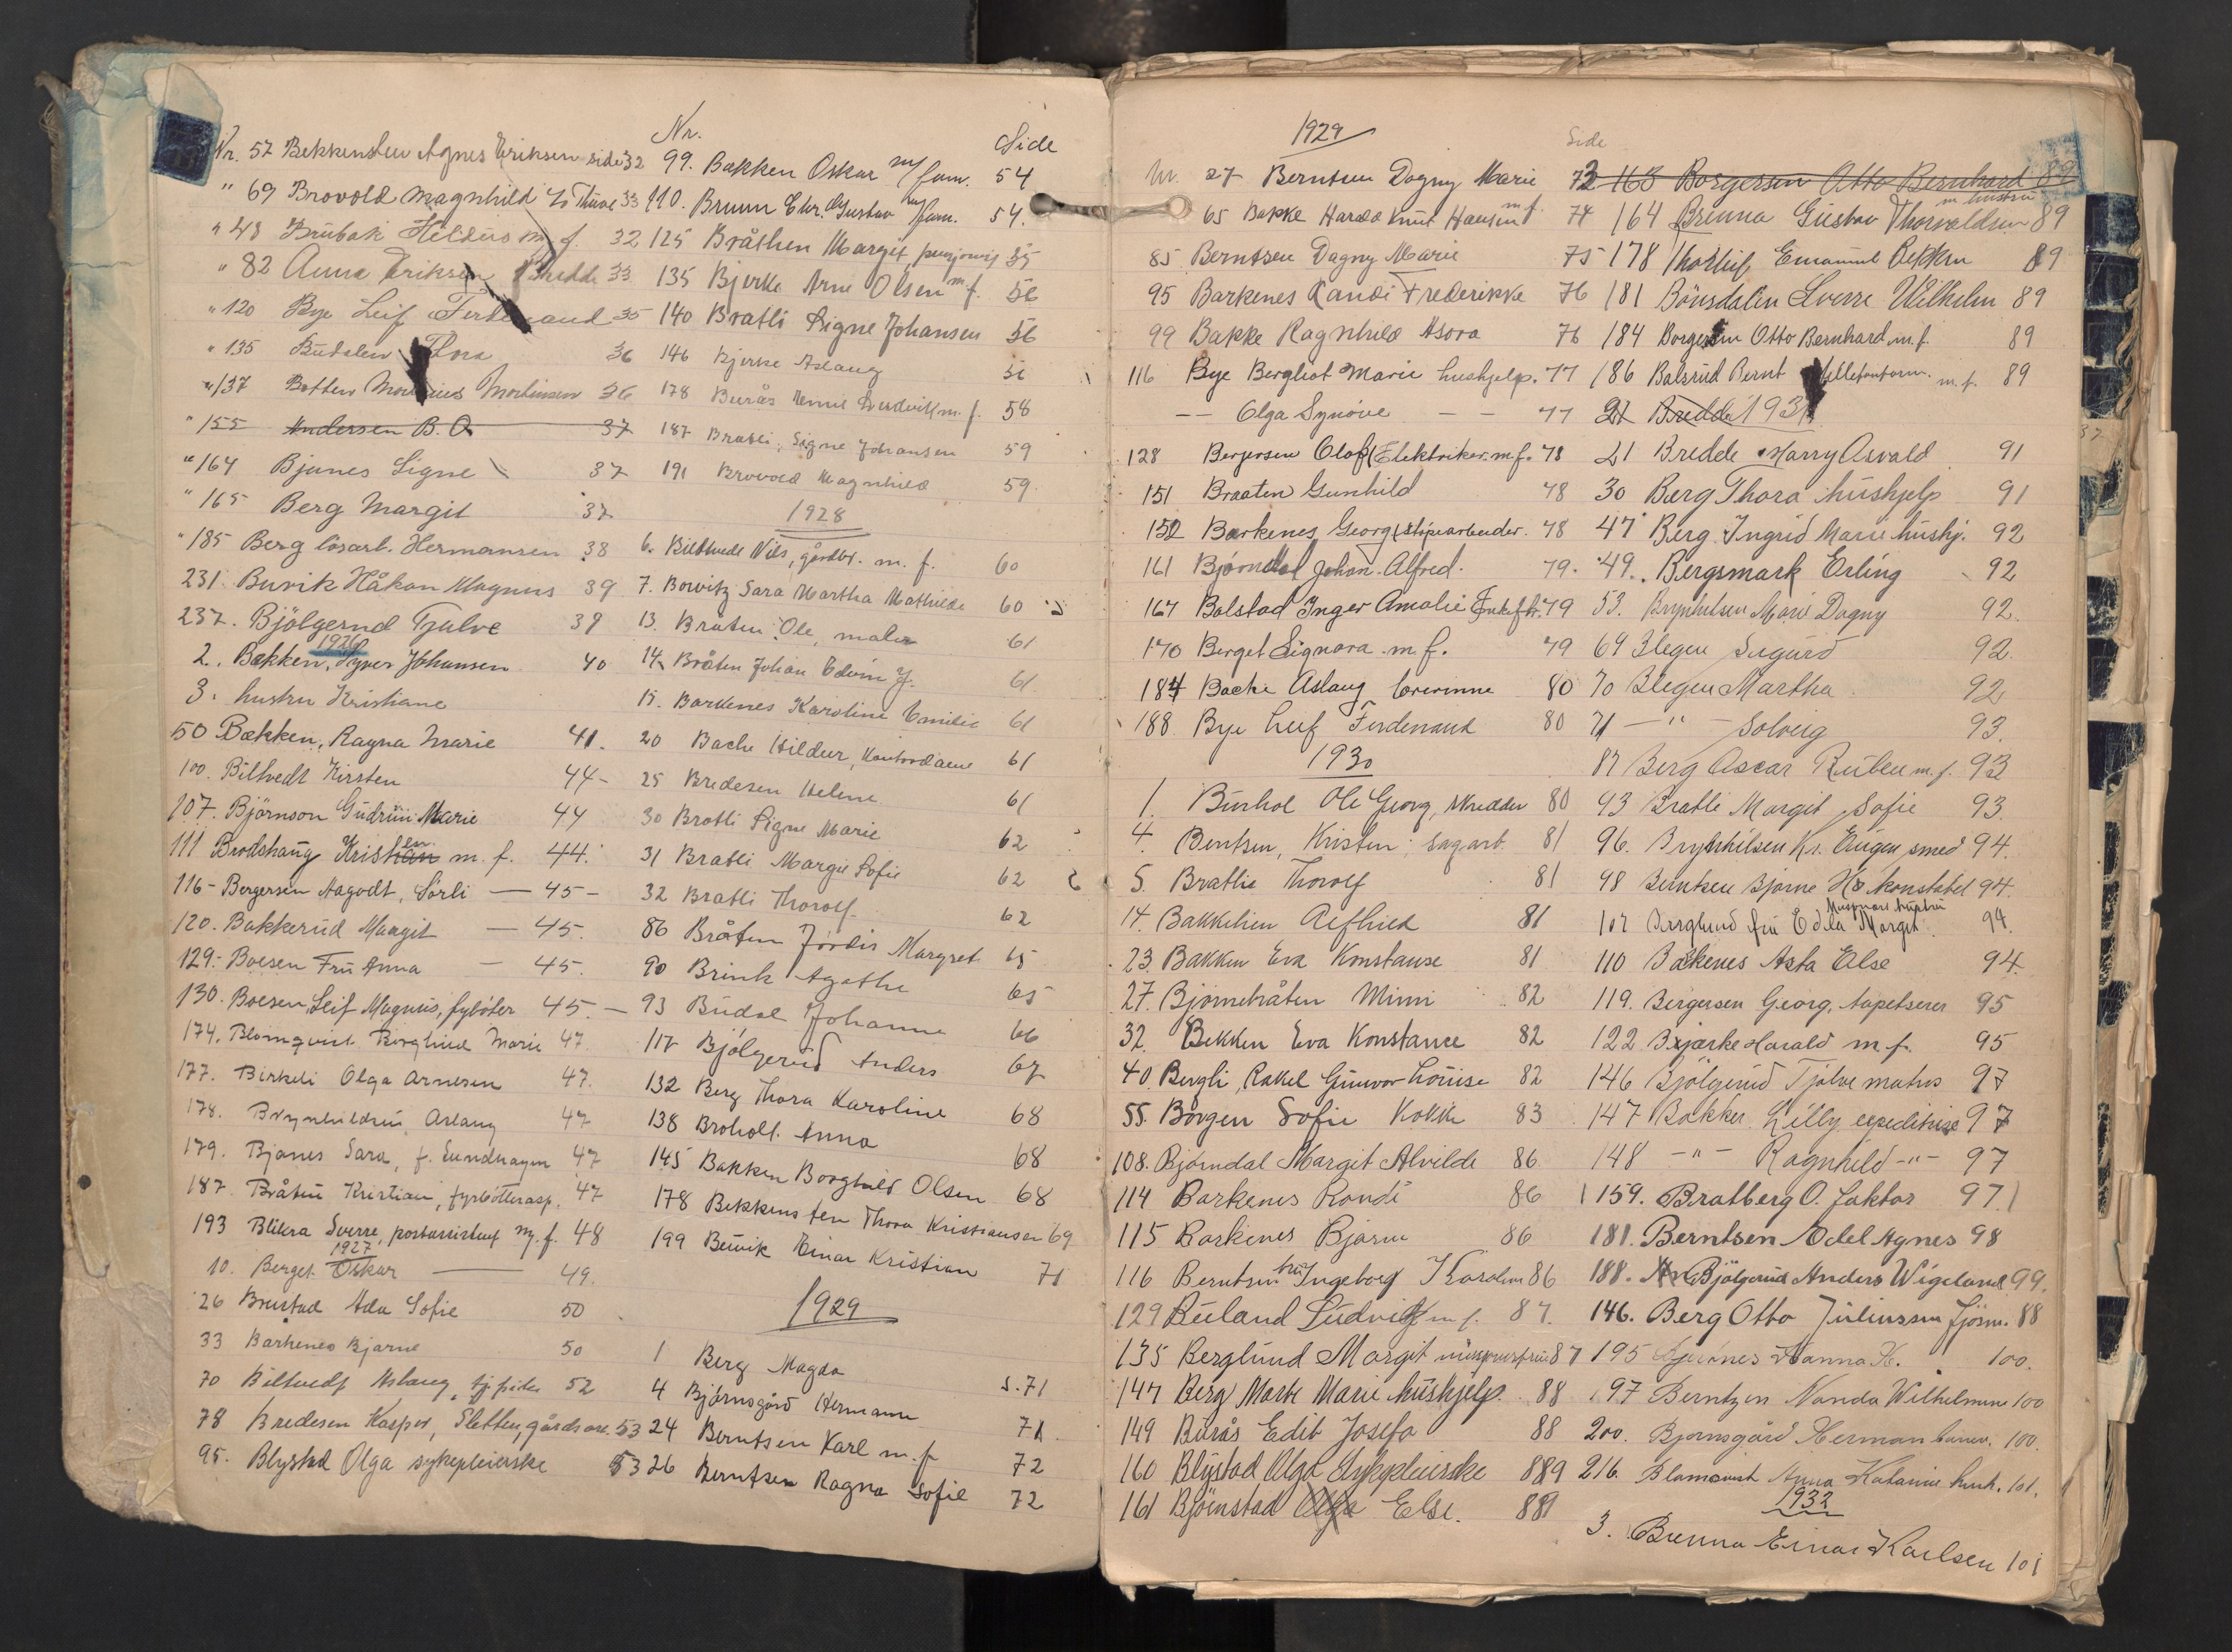 Nr. 57 Bekkensten Agnes Eriksen side 32
" 69 Brovold Magnhild 33
" 48 Brubak m. f. 32
" 82 Anna Eriksen Bredde 33
" 120 Bye Leif Ferdinand 35
" 135 Budalen Thora 36
" 137 Botten Mortinsen 36
" 155 Andersen B. O. 37
" 164 Bjanes Signe 37
" 165 Berg Margit 37
" 185 Berg lösarb. Hermansen 38
231. Buvik Håkon Magnus 39
237. Bjölgerud Tjalve 39
1926
2. Bækken, Johansen 40
3. hustru Kristiane
50 Bækken, Ragna Marie 41.
100. Biltvedt Kirsten 44-
107. Björnson Gudrun Marie 44
111 Brodshaug Kristian en m. f. 44.
116- Bergersen Aagodt, Sörli — 45-
120. Bakkerud Margit — 45.
129.- Boesen Fru Anna — 45.
130. Boesen, Leif Magnus, fyböter 45. —
174. Blomqvist Borghild Marie 47
177. Birkeli Olga Arnesen 47.
178. Brynhildsen Aslaug 47
179. Bjanes Sara, f. Sundhagen 47
187. Bråten Kristian, fyrbötterasp. 47
193 Blikra Sverre, postassistent m. f. 48
1927
10. Berget Oskar — 49.
26 Brustad Ada Sofie 50
33 Barkenes Bjarne 50
70 Biltvedt Aslaug, 52
78 Bredesen Kasper, Sletten, gårdsarb. 53
95. Blystad Olga sykepleierske 53
Nr. Side
99. Bakken Oskar m/ fam. 54
110. Bruun Chr. Gustav m/ fam. 54.
125 Bråthen Margit 55
135 Bjerke Arne Olsen m. f. 56
140 Bratli Signe Johansen 56
146 Bjerke Aslaug 56
178 Burås Ludvik m. f. 58
187 Bratli, Signe Johansen 59
191 Brovold Magnhild 59.
1928
6. Biltvedt Nils, gårdbr. m. f. 60
7. Borvitz Sara Martha Mathilde 60
13. Bråten Ole, maler 61
14. Bråten Johan Edvin J. 61
15. Barkenes Karoline Emilie 61
20 Bache Hildur, Kontordame 61
25 Bredesen Helene 61
30 Bratli Signe Marie 62
31 Bratli Margit Sofie 62
32 Bratli Thorolf. 62
86 Bråten Jordis Margret 65
90 Brink Agathe 65
93 Budal Johanne 66
117 Bjölgerud Anders 67
132 Berg Thora Karoline 68
138 Broholt. Anna 68
145 Bakken Borghild Olsen 68
178 Bekkensten Thora Kristiansen 69
199 Buvik Einar Kristian 71
1929
1 Berg Magda S. 71
4 Björnsgård Hermann 71.
24 Berntsen Karl m. f 72
26 Berntsen Ragna Sofie 72
1929
Nr. 27 Berntsen Dagny Marie 72
65 Bakke Harald Knut Hansen m. f. 74
85 Berntsen Dagny Marie 75
95 Barkenes Randi Frederikke 76
99 Bakke Ragnhild Asora 76
116 Bye Bergliot Marie hushjelp. 77
— — Olga Synöve — — 77
128 Bergersen Olaf (Elektriker. m. f. 78
151 Braaten Gunhild 78
152 Barkenes Georg (slipearbeider. 78
161 Bjørndal Johan Alfred. 79.
167 Bolstad Inger Amalie 79
170 Berget Signora m. f. 79
184 Bache Aslaug lærerinne 80
188 Bye Leif Ferdinand 80
1930
1. Burhol Ole Georg, skredder 80
4. Bentsen, Kristen, sagarb. 81
5. Bratlie Thorolf 81
14. Bakkelien Alfhild 81
23. Bakken Eva Konstanse 81
27. Bjørnebråten Mimi 82
32. Bekken Eva Konstanse 82
40. Bergli, Rakel Gunvor Louise 82
55. Borgen Sofie Kokke 83
108. Bjørndal Margit Alvilde 86
114 Barkenes Randi 86
115 Barkenes Bjarne 86
116 Berntsen fru Ingeborg Karoline 86
129 Buland Ludvig m. f. 87.
135 Berglund Margit 87
147 Berg Marte Marie hushjelp. 88
149 Burås Edit Josefa 88
160 Blystad Olga Sykepleierske 889
161 Bjørnstad Olga Else. 889
Side
163 Borgersen Otto Bernhard 89
m. hustru
164 Brenna Gustav Thorvaldsen 89
178 Thorleif Emanuel Bekken 89
181 Bönsdalen Sverre Wilhelm 89
184 Borgersen Otto Bernhard m. f. 89
186 Balsrud Bernt m. f. 89
21 Bredde 1931
21 Bredde Harry Asvald 91
30 Berg Thora hushjelp 91
47 Berg Ingrid Marie hushj. 92
49. Bergsmark Erling 92
53. Brynhilsen Marie Dagny 92.
69 Blegen Sigurd 92.
70 Blegen Martha 92
71 — " — Solveig 93.
87 Berg Oscar Ruben m. f. 93
93 Bratli Margit Sofie 93.
96. Brynhilsen Kr. Eugen smed 94.
98 Berntsen Bjarne konstabel 94.
107 Berglund fru Edla Margit 94.
110 Barkenes Asta Else 94.
119. Bergersen Georg, tapetserer 95
122 Bjærke Harald m. f. 95
146 Bjölgerud Tjalve matros 97
147 Bakken Lilly expeditrise 97
148 — " — Ragnhild — " — 97
159. Bratberg O. faktor 97.
181. Berntsen Odel Agnes 98
188. Bjölgerud Anders Wigeland 99.
146. Berg Otto Juliussen fjösm. 88
195 Hanna K. 100.
197 Berntzen Nanda Wilhelmine 100
200. Bjørnsgård Herman 100.
216. Blomqvist Anna Katarine hush. 101.
1932
3. Brenna Einar Karlsen 101